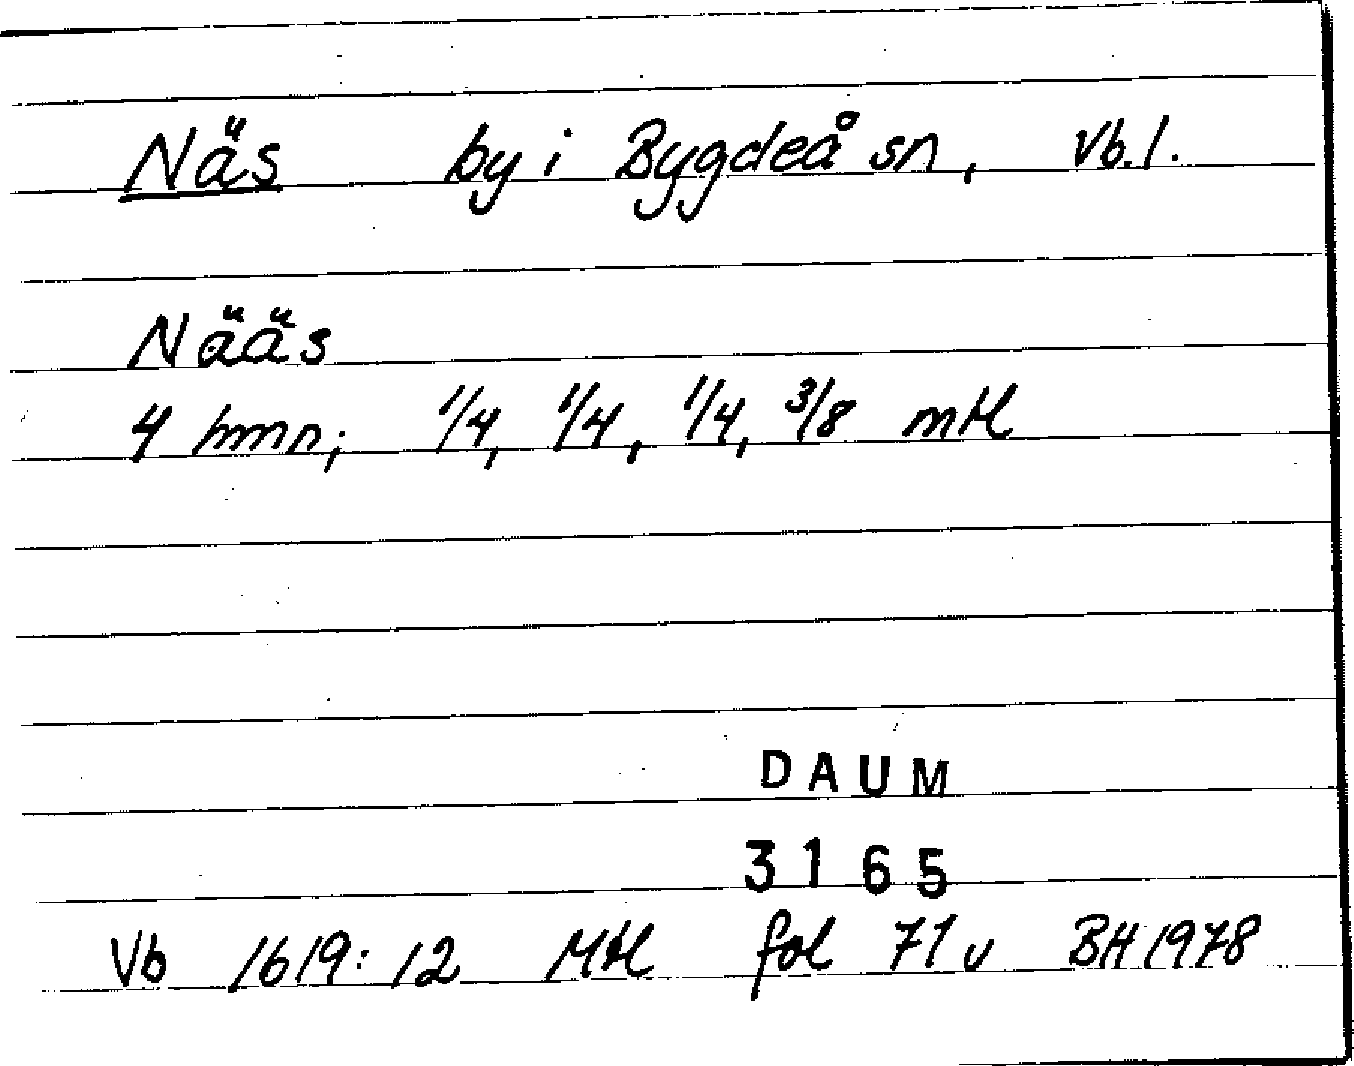 Näs by i Bygdeå sn, Vb. l.
Nääs
4 hmn; 1/4, 1/4, 1/4, 3/8 mtl
DAUM
3165
Vb 1619:12 Mtl fol 71v BH 1978